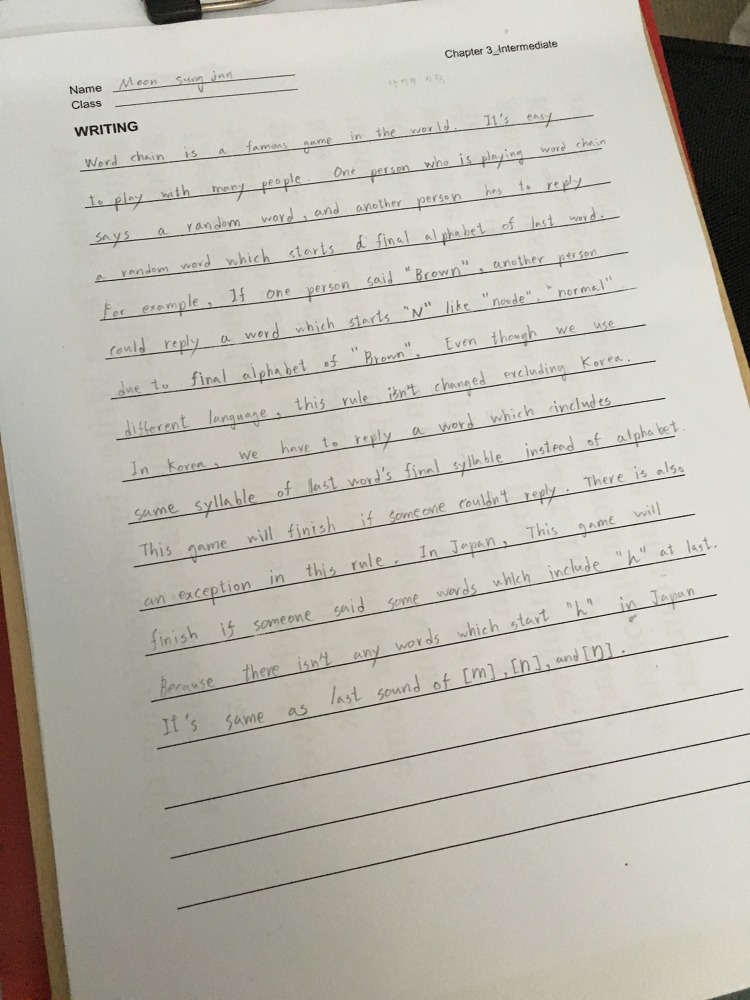 Chapter 3_Intermediate
Name Moon sung jun
Class
WRITING
Word chain is a famous game in the world. It's easy
to play with many people. One person who is playing word chain
says a random word, and another person has to reply
a random word which starts final alphabet of last word.
For example, If one person said "Brown", another person
could reply a word which starts "N" like "noode", "normal"
due to final alphabet of "Brown". Even though we use
different language, this rule isn't changed excluding Korea.
In Korea, we have to reply a word which includes
same syllable of last word's final syllable instead of alphabet.
This game will finish if someone couldn't reply. There is also
an exception in this rule. In Japan, This game will
finish if someone said some words which include "h" at last.
Because there isn't any words which start "h" in Japan
It's same as last sound of [m], [n], and [ŋ].